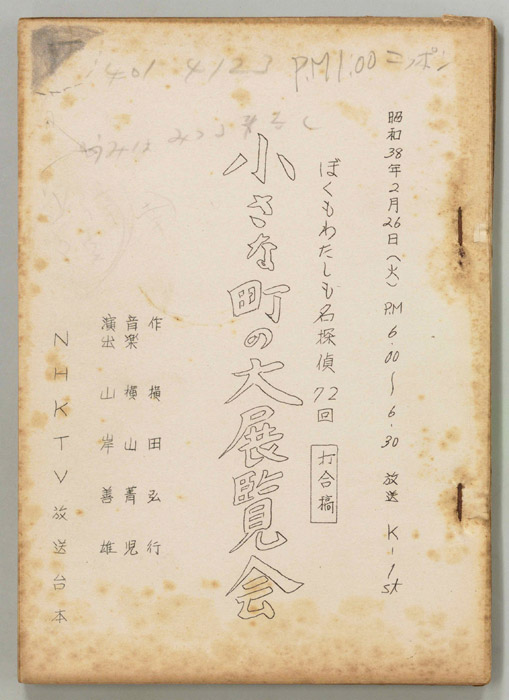 401 4123 P.M 1:00 ニッポン
昭和38年2月26日(火)P.M 6.00〜6.30 放送 K-1st
ぼくもわたしも名探偵 72回 打合稿
小さな町の大展覧会
作 横田弘行
音楽 横山菁児
演出 山岸善雄
NHKTV放送台本